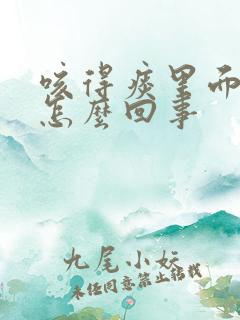 咳得痰里而
怎么回事
九尾小妖
未经同意禁止转载